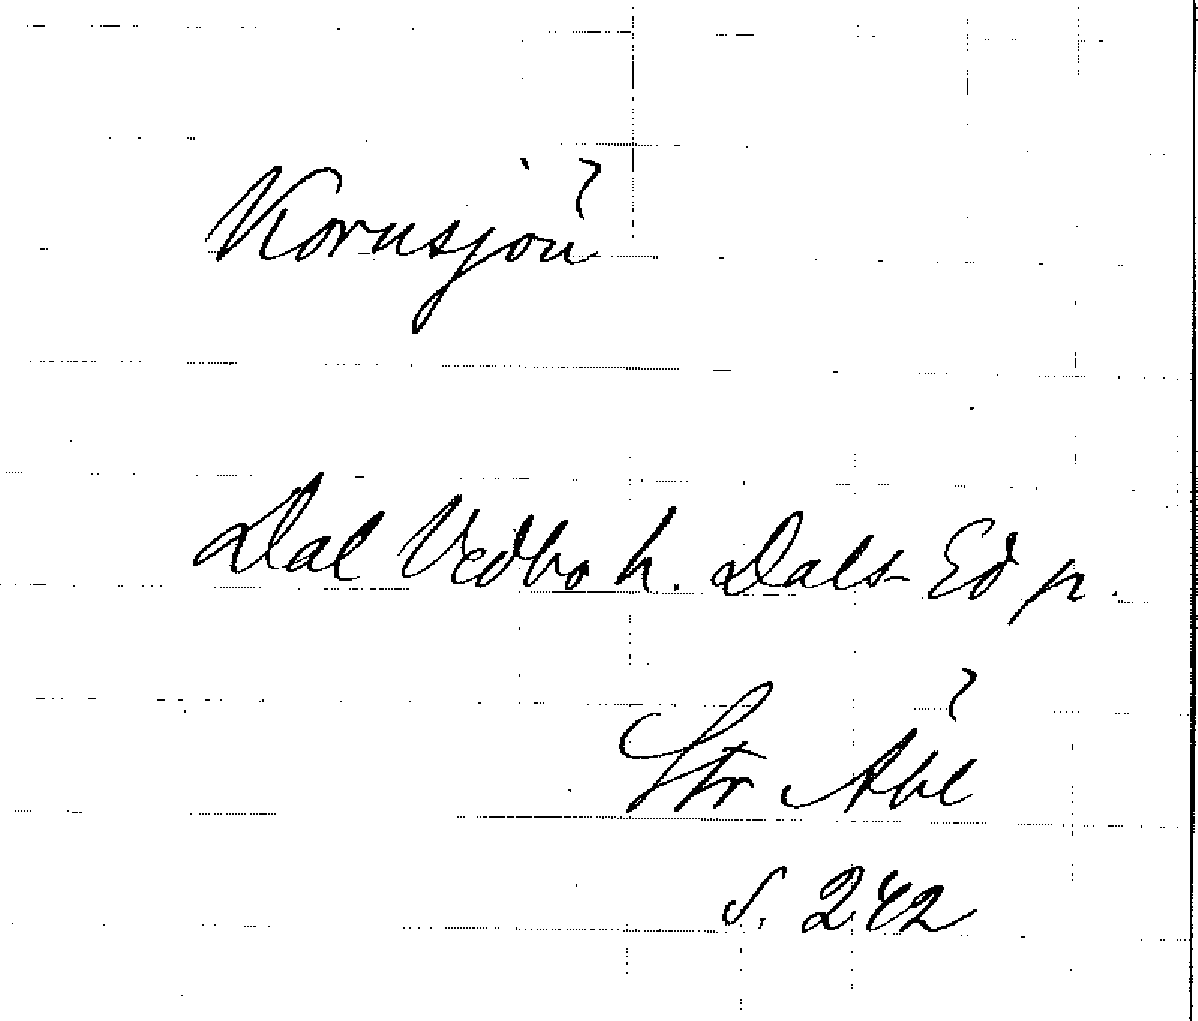 Kornsjön
Dal Vedbo h. Dals-Ed p.
Str
s. 242